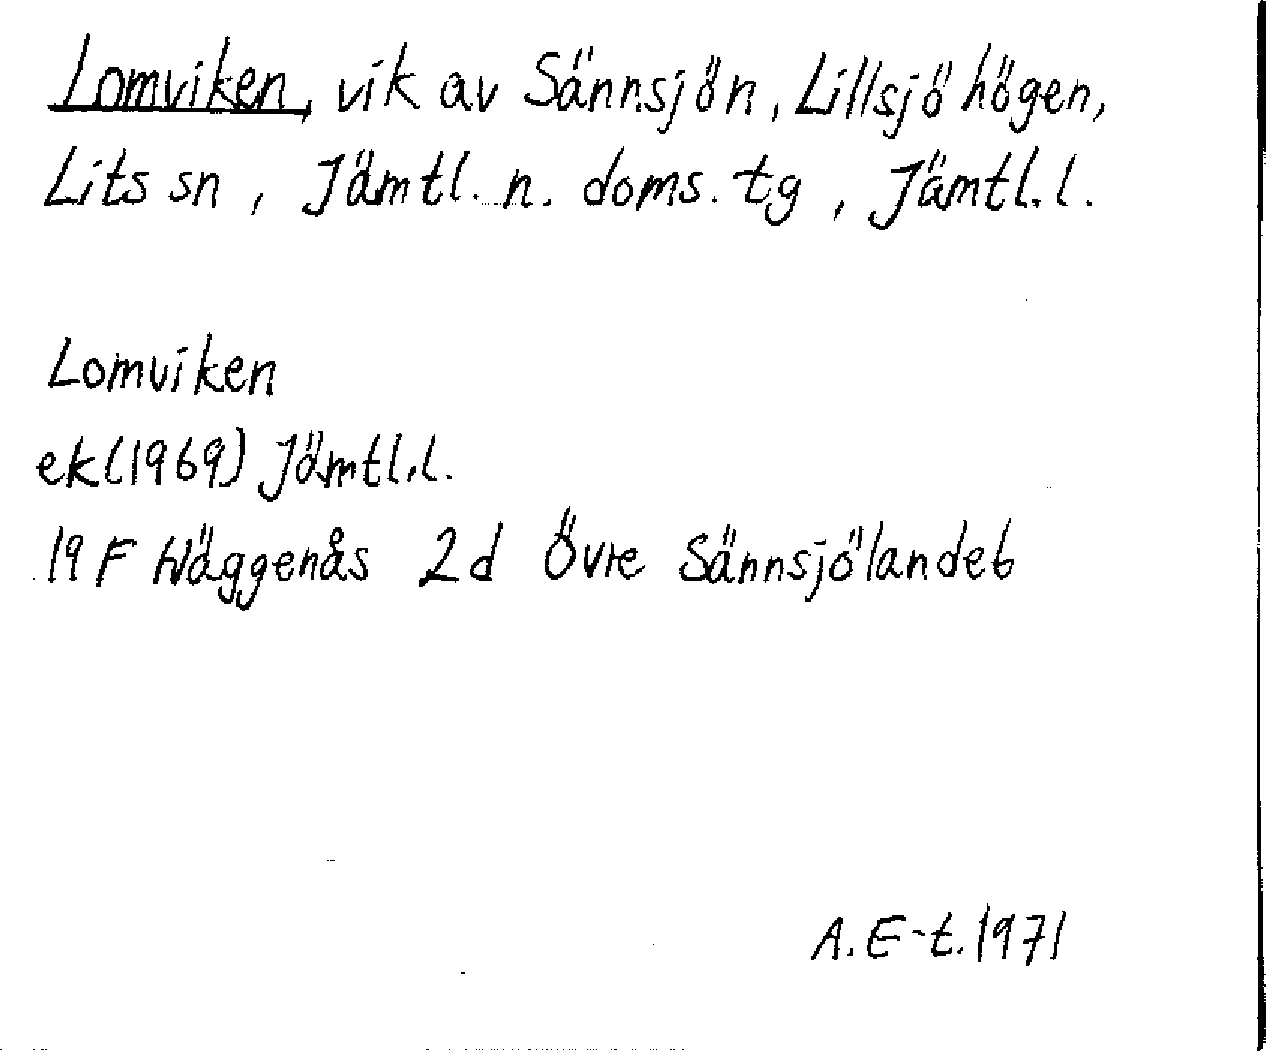 Lomviken, vik av Sännsjön, Lillsjöhögen,
Lits sn, Jämtl. n. doms. tg, Jämtl. l.
Lomviken
ek (1969) Jämtl. l.
19 F Häggenås 2d Övre Sännsjölandet
A. E-t. 1971